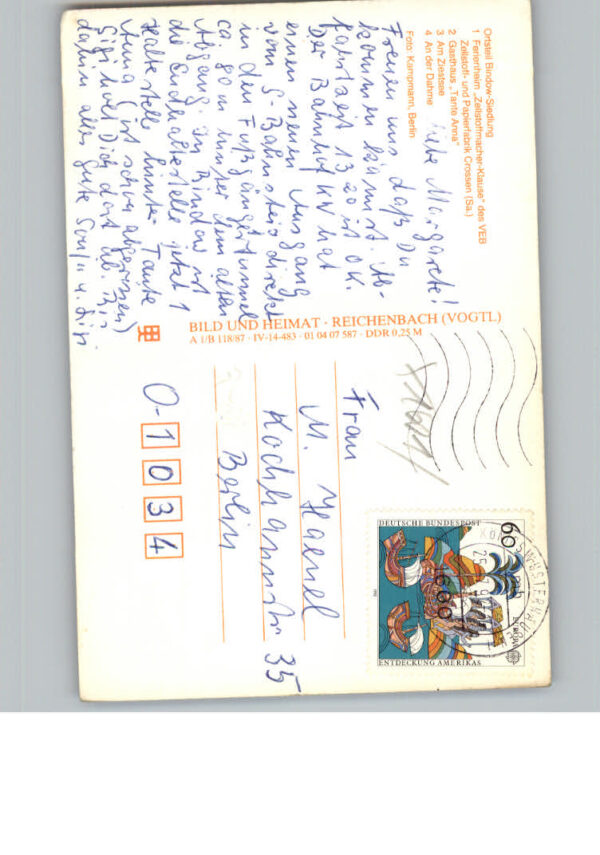 Ortsteil Bindow-Siedlung
1 Ferienheim „Zellstoffmacher-Klause" des VEB
Zellstoff- und Papierfabrik Crossen (Sa.)
2 Gasthaus „Tante Anna"
3 Am Ziestsee
4 An der Dahme
Foto: Kampmann, Berlin
Liebe Margarete!
Freuen uns daß Du
kommen kannst. Ab-
fahrtzeit 13 20 ist O.K.
Der Bahnhof KW hat
einen neuen Ausgang
vom S-Bahnsteig direkt
in den Fußgängertunnel
ca 80m hinter dem alten
Abgang. In Bindow ist
die Endhaltestelle jetzt 1
Haltestelle hinter Tante
Anna (ist schon abgerissen)
Gigi holt Dich dort ab. Bis
dahin alles Gute
BILD UND HEIMAT · REICHENBACH (VOGTL)
A 1/B 118/87 · IV-14-483 · 01 04 07 587 · DDR 0,25 M
Frau
M. Haenel
Kochhannstr 35
Berlin
O-1034
DEUTSCHE BUNDESPOST
60
1992
EUROPA
ENTDECKUNG AMERIKAS